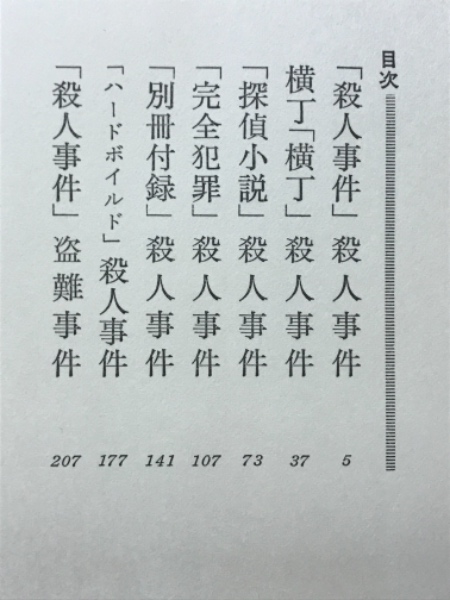 目次
「殺人事件」殺人事件 5
横丁「横丁」殺人事件 37
「探偵小説」殺人事件 73
「完全犯罪」殺人事件 107
「別冊付録」殺人事件 141
「ハードボイルド」殺人事件 177
「殺人事件」盗難事件 207